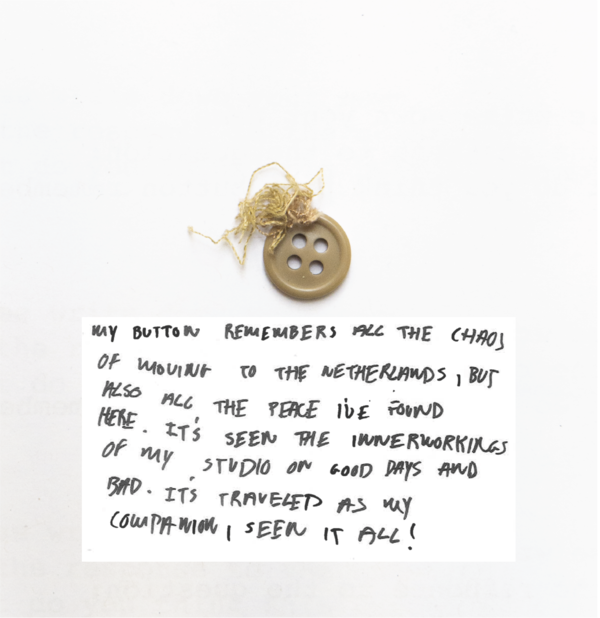 MY BUTTON REMEMBERS ALL THE CHAOS
OF MOVING TO THE NETHERLANDS, BUT
ALSO ALL THE PEACE I'VE FOUND
HERE. IT'S SEEN THE INNERWORKINGS
OF MY STUDIO ON GOOD DAYS AND
BAD. IT'S TRAVELED AS MY
COMPANION, SEEN IT ALL!